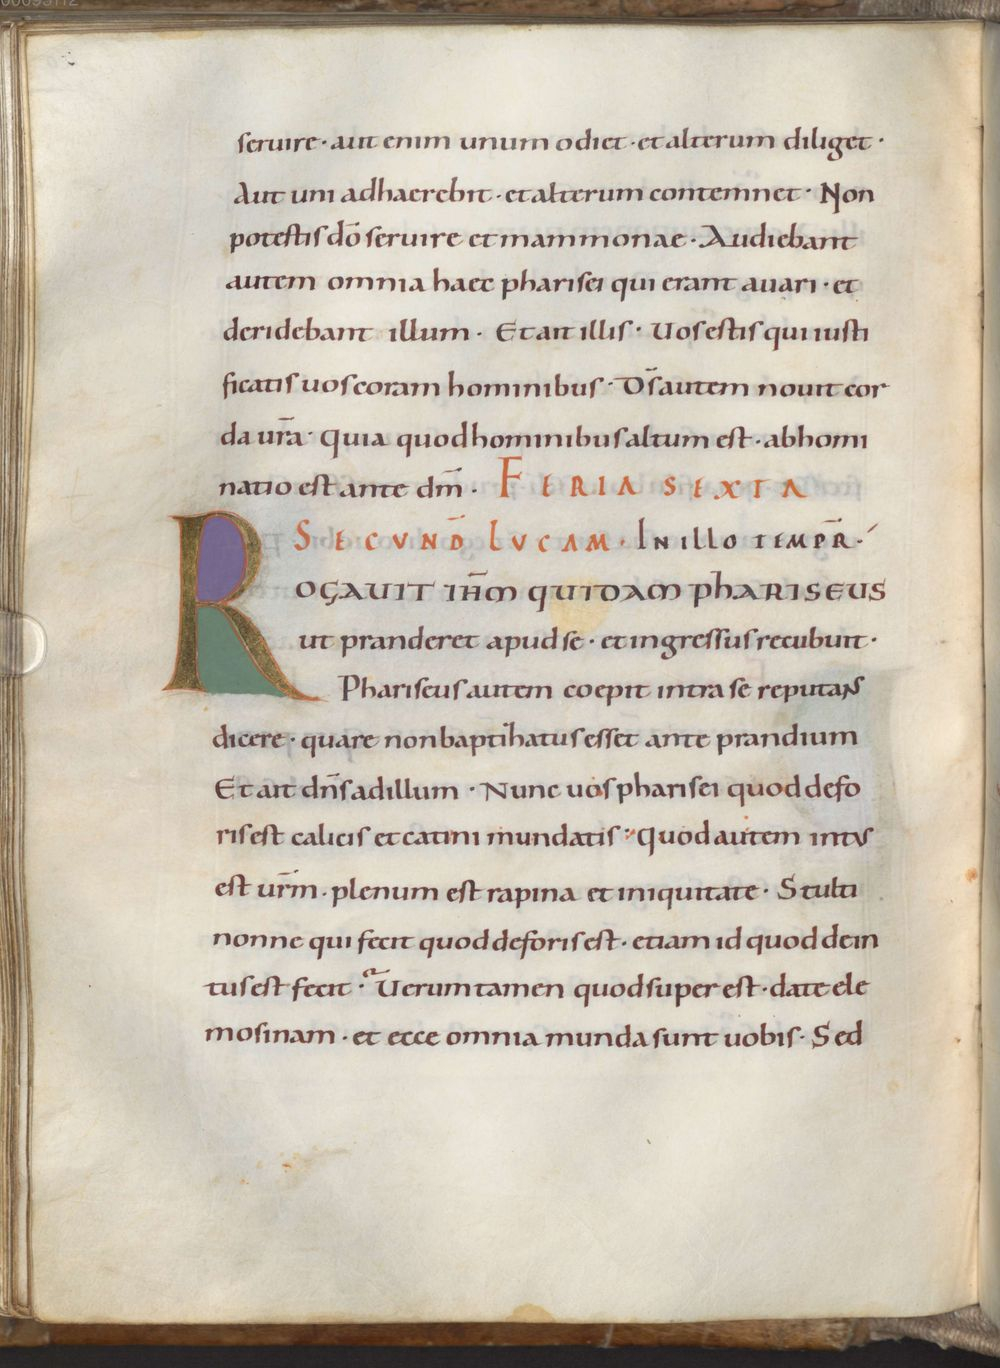 00095112
seruire · aut enim unum odiet · et alterum diliget ·
Aut uni adhaerebit · et alterum contemnet · Non
potestis dō seruire et mammonae · Audiebant
autem omnia haec pharisei qui erant auari · et
deridebant illum · Et ait illis · Uos estis qui iusti
ficatis uos coram hominibus · Ds̄ autem nouit cor
da ur̄a · quia quod hominibus altum est · abhomi
natio est ante dm̄ · FERIA SEXTA
SECUND̄ LUCAM · IN ILLO TEMPR̄ ·
ROGAUIT IH̄M QUIDAM PHARISEUS
ut pranderet apud se · et ingressus recubuit ·
Phariseus autem coepit intra se reputans
dicere · quare non baptihatus esset ante prandium
Et ait dn̄s ad illum · Nunc uos pharisei quod defo
ris est calicis et catini mundatis · Quod autem intus
est ur̄m · plenum est rapina et iniquitate · Stulti
nonne qui fecit quod deforis est · etiam id quod dein
tus est fecit · Uerumtamen quod super est · date ele
mosinam · et ecce omnia munda sunt uobis · Sed